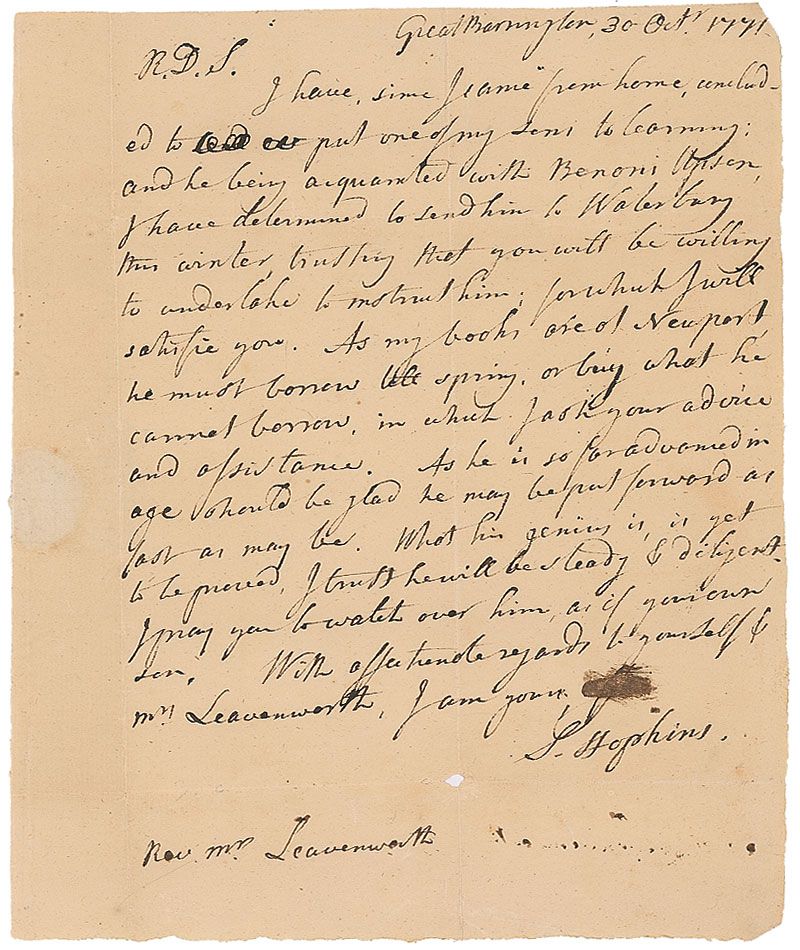 Great Barrington, 30 Octr. 1771
R. D. S.
I have, since I came from home, conclud-
ed to put one of my sons to learning;
and he being acquainted with Benoni Upson,
I have determined to send him to Waterbury
this winter, trusting that you will be willing
to undertake to instruct him; for which I will
satisfie you. As my books are at Newport,
he must borrow till spring, or buy what he
cannot borrow, in which I ask your advice
and assistance. As he is so far advanced in
age should be glad he may be put forward as
fast as may be. What his genius is, is yet
to be proved, I trust he will be steady & diligent.
I pray you to watch over him, as if your own
son. With affectionate regards to yourself &
Mrs Leavenworth, I am yours,
S. Hopkins.
Rev. Mr. Leavenworth